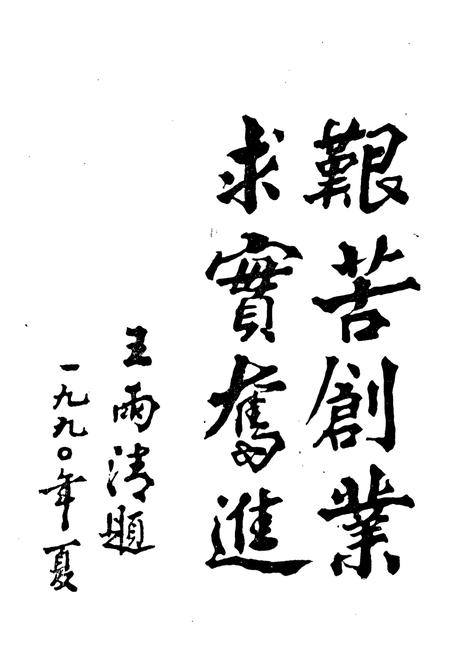 艱苦創業
求實奮進
王雨清題
一九九〇年夏